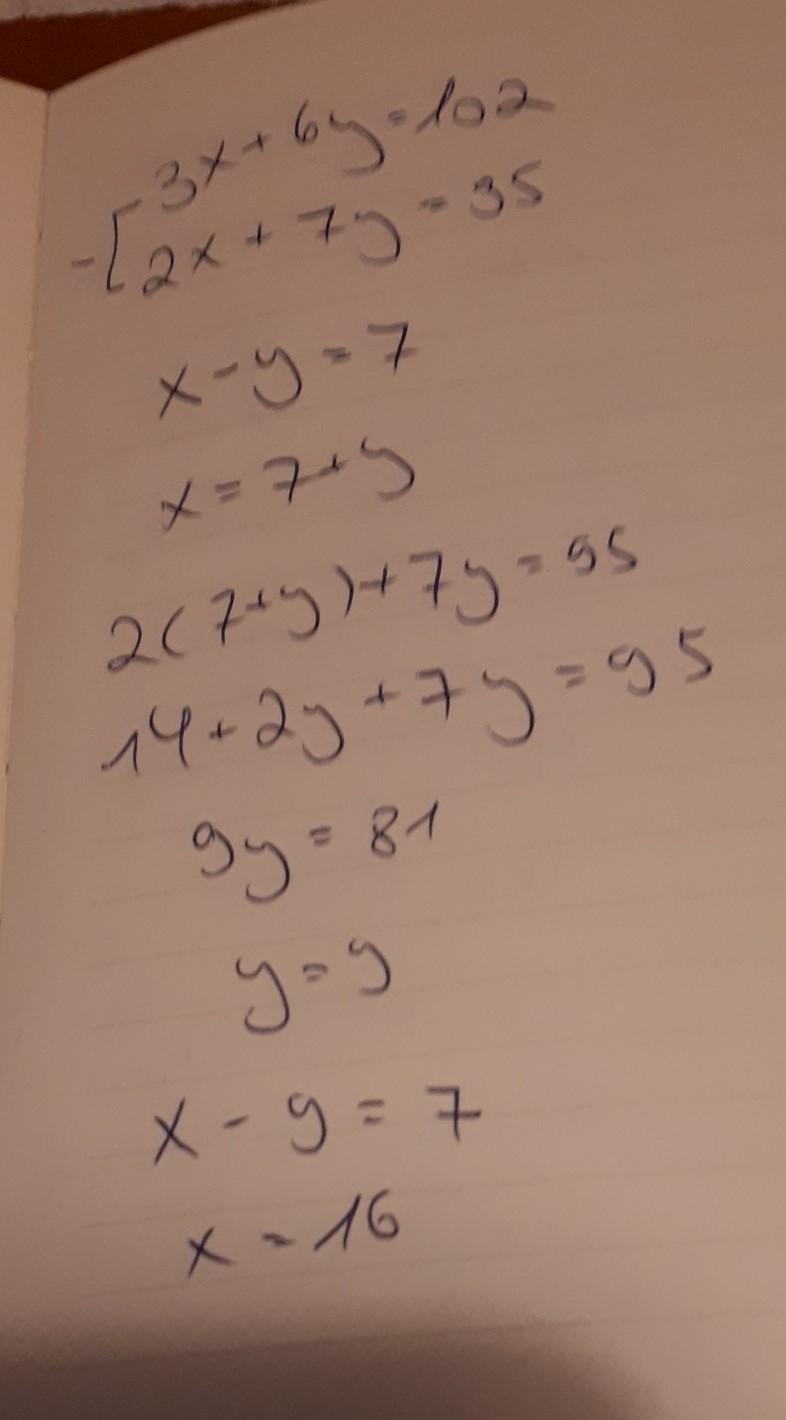 3x + 6y = 102
-[2x + 7y = 95
x - y = 7
x = 7 + y
2(7+y) + 7y = 95
14 + 2y + 7y = 95
9y = 81
y = 9
x - 9 = 7
x = 16